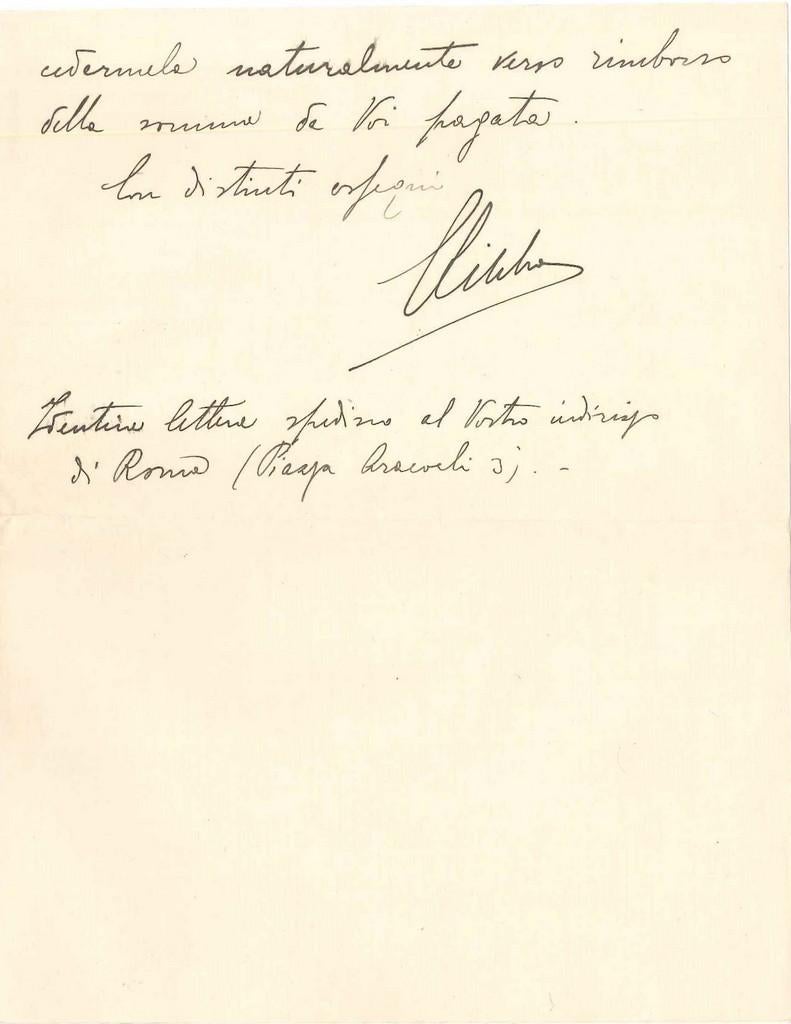 cedermela naturalmente verso rimborso
della somma da Voi pagata.
Con distinti ossequi
Identica lettera spedisco al Vostro indirizzo
di Roma (Piazza Aracoeli 3). -